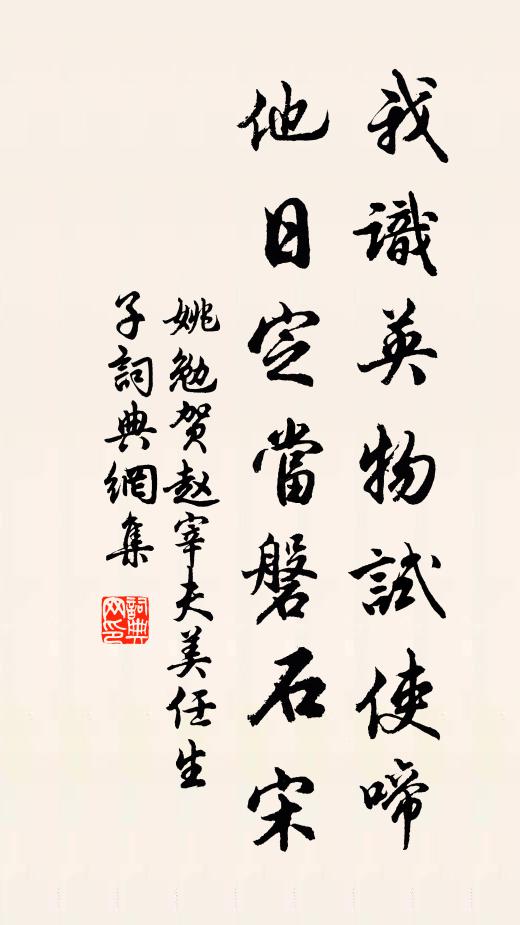 我識英物試使啼
他日定當磐石宋
姚勉贺赵宰夫美任生
子詞典網集
詞典
网印